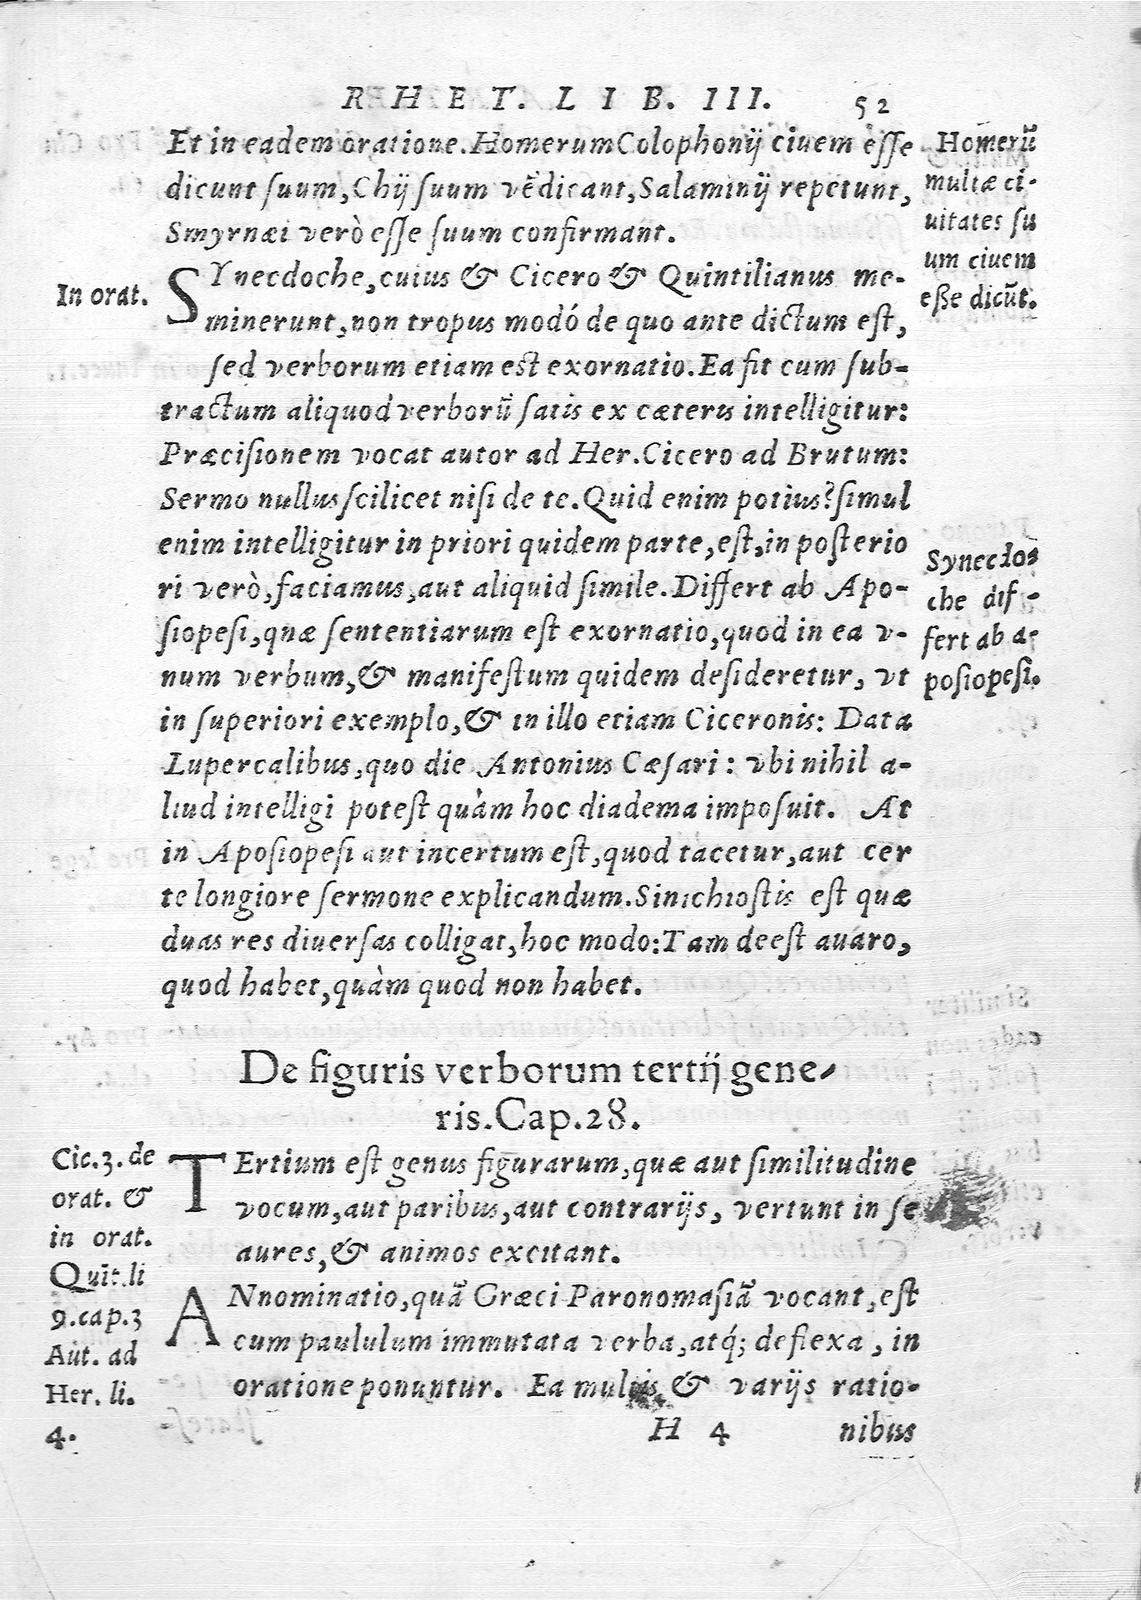 RHET. LIB. III. 52
Et in eadem oratione. Homerum Colophonij ciuem esse
dicunt suum, Chij suum vẽdicant, Salaminij repetunt,
Smyrnæi verò esse suum confirmant.
Homerũ
multæ ci-
uitates su
um ciuem
eße dicũt.
In orat.
SYnecdoche, cuius & Cicero & Quintilianus me-
minerunt, non tropus modó de quo ante dictum est,
sed verborum etiam est exornatio. Ea fit cum sub-
tractum aliquod verborũ satis ex cæteris intelligitur:
Præcisionem vocat autor ad Her. Cicero ad Brutum:
Sermo nullus scilicet nisi de te. Quid enim potius? simul
enim intelligitur in priori quidem parte, est, in posterio
ri verò, faciamus, aut aliquid simile. Differt ab Apo-
siopesi, quæ sententiarum est exornatio, quod in ea v-
num verbum, & manifestum quidem desideretur, vt
in superiori exemplo, & in illo etiam Ciceronis: Data
Lupercalibus, quo die Antonius Cæsari: vbi nihil a-
liud intelligi potest quàm hoc diadema imposuit. At
in Aposiopesi aut incertum est, quod tacetur, aut cer
te longiore sermone explicandum. Sinichiostis est quæ
duas res diuersas colligat, hoc modo: Tam deest auaro,
quod habet, quàm quod non habet.
Synecdo-
che dif-
fert ab a-
posiopesi.
De figuris verborum tertij gene-
ris. Cap. 28.
Cic. 3. de
orat. &
in orat.
Quĩt. li
9. cap. 3
Aut. ad
Her. li.
4.
TErtium est genus figurarum, quæ aut similitudine
vocum, aut paribus, aut contrarijs, vertunt in se
aures, & animos excitant.
ANnominatio, quã Græci Paronomasiã vocant, est
cum paululum immutata verba, atq́; deflexa, in
oratione ponuntur. Ea multis & varijs ratio-
H 4 nibus